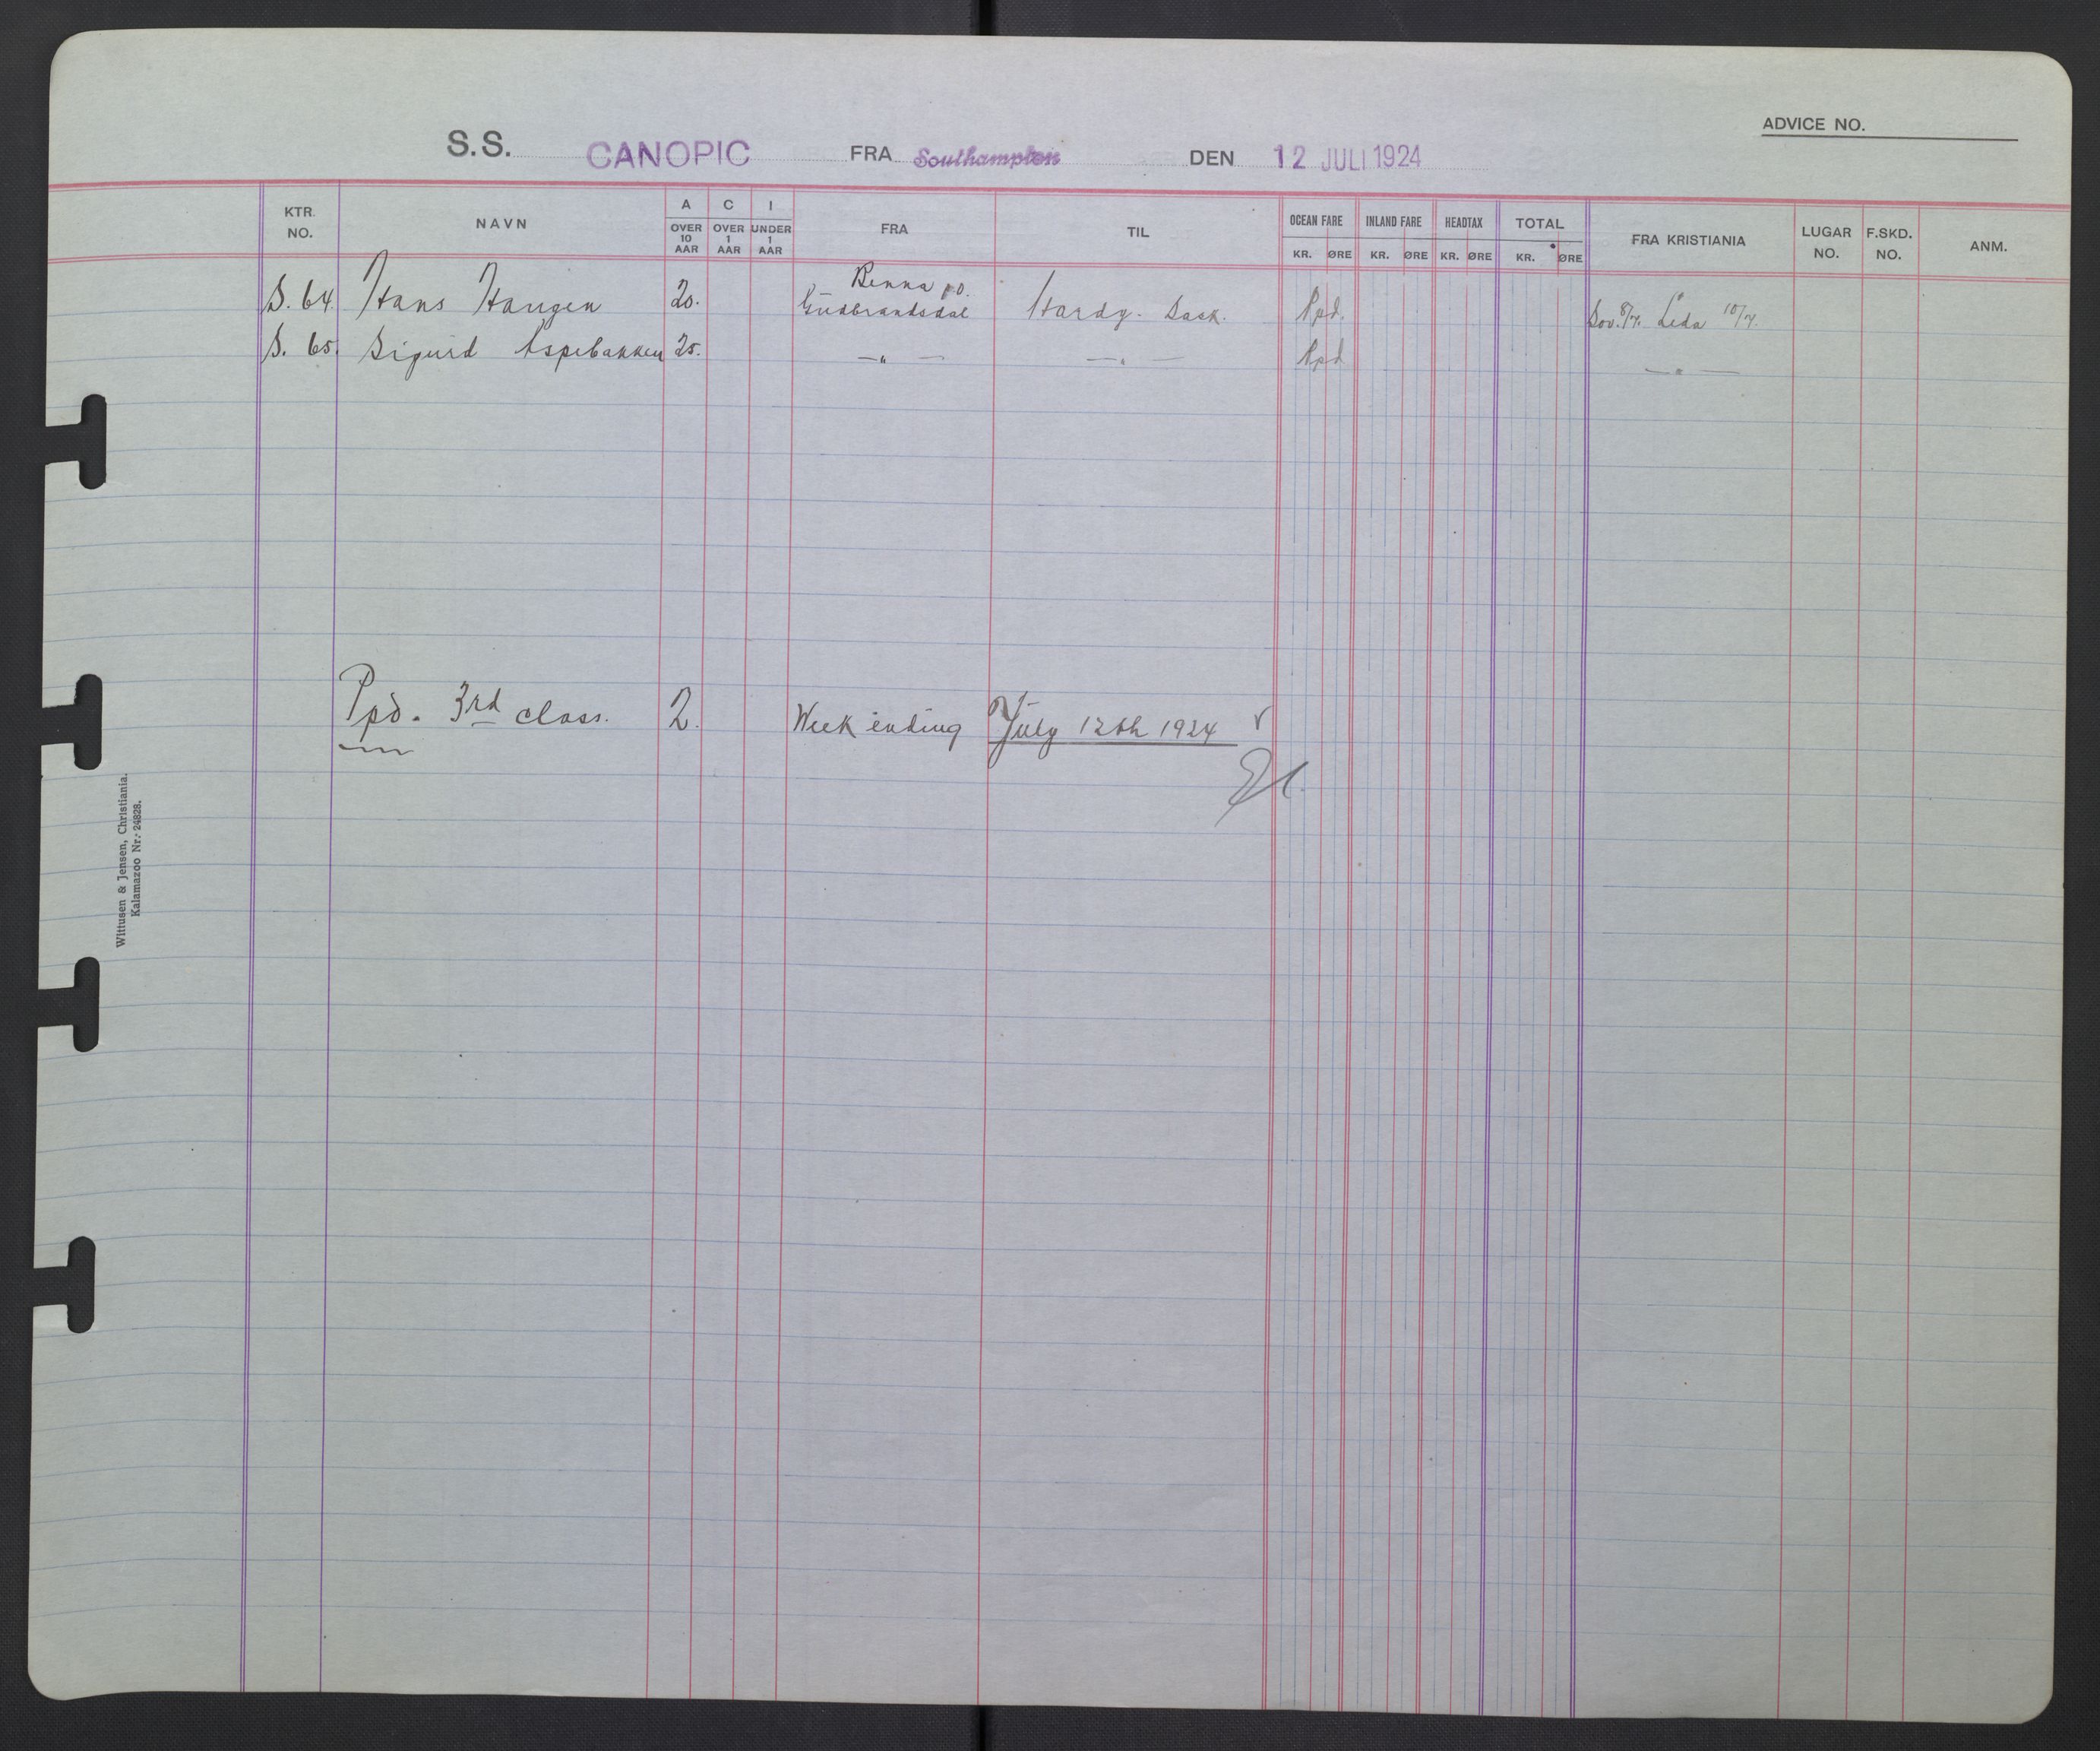 ADVICE NO.
S.S. CANOPIC FRA Southampton DEN 12 JULI 1924
KTR. NO. NAVN A OVER 10 AAR C OVER 1 AAR I UNDER 1 AAR FRA TIL OCEAN FARE KR. ØRE INLAND FARE KR. ØRE HEADTAX KR. ØRE TOTAL KR. ØRE FRA KRISTIANIA LUGAR NO. F.SKD. NO. ANM.
S. 64. Hans Haugen 20. Renna p.o. Gudbrandsdal Hardy. Sask. Ppd. 8/7. Leda 10/7.
S. 65. Sigurd Aspebakken 25. — " — — " — Ppd — " —
Ppd. 3rd class. 2. Week ending July 12th 1924 √
Wittusen & Jensen, Christiania.
Kalamazoo Nr. 24828.